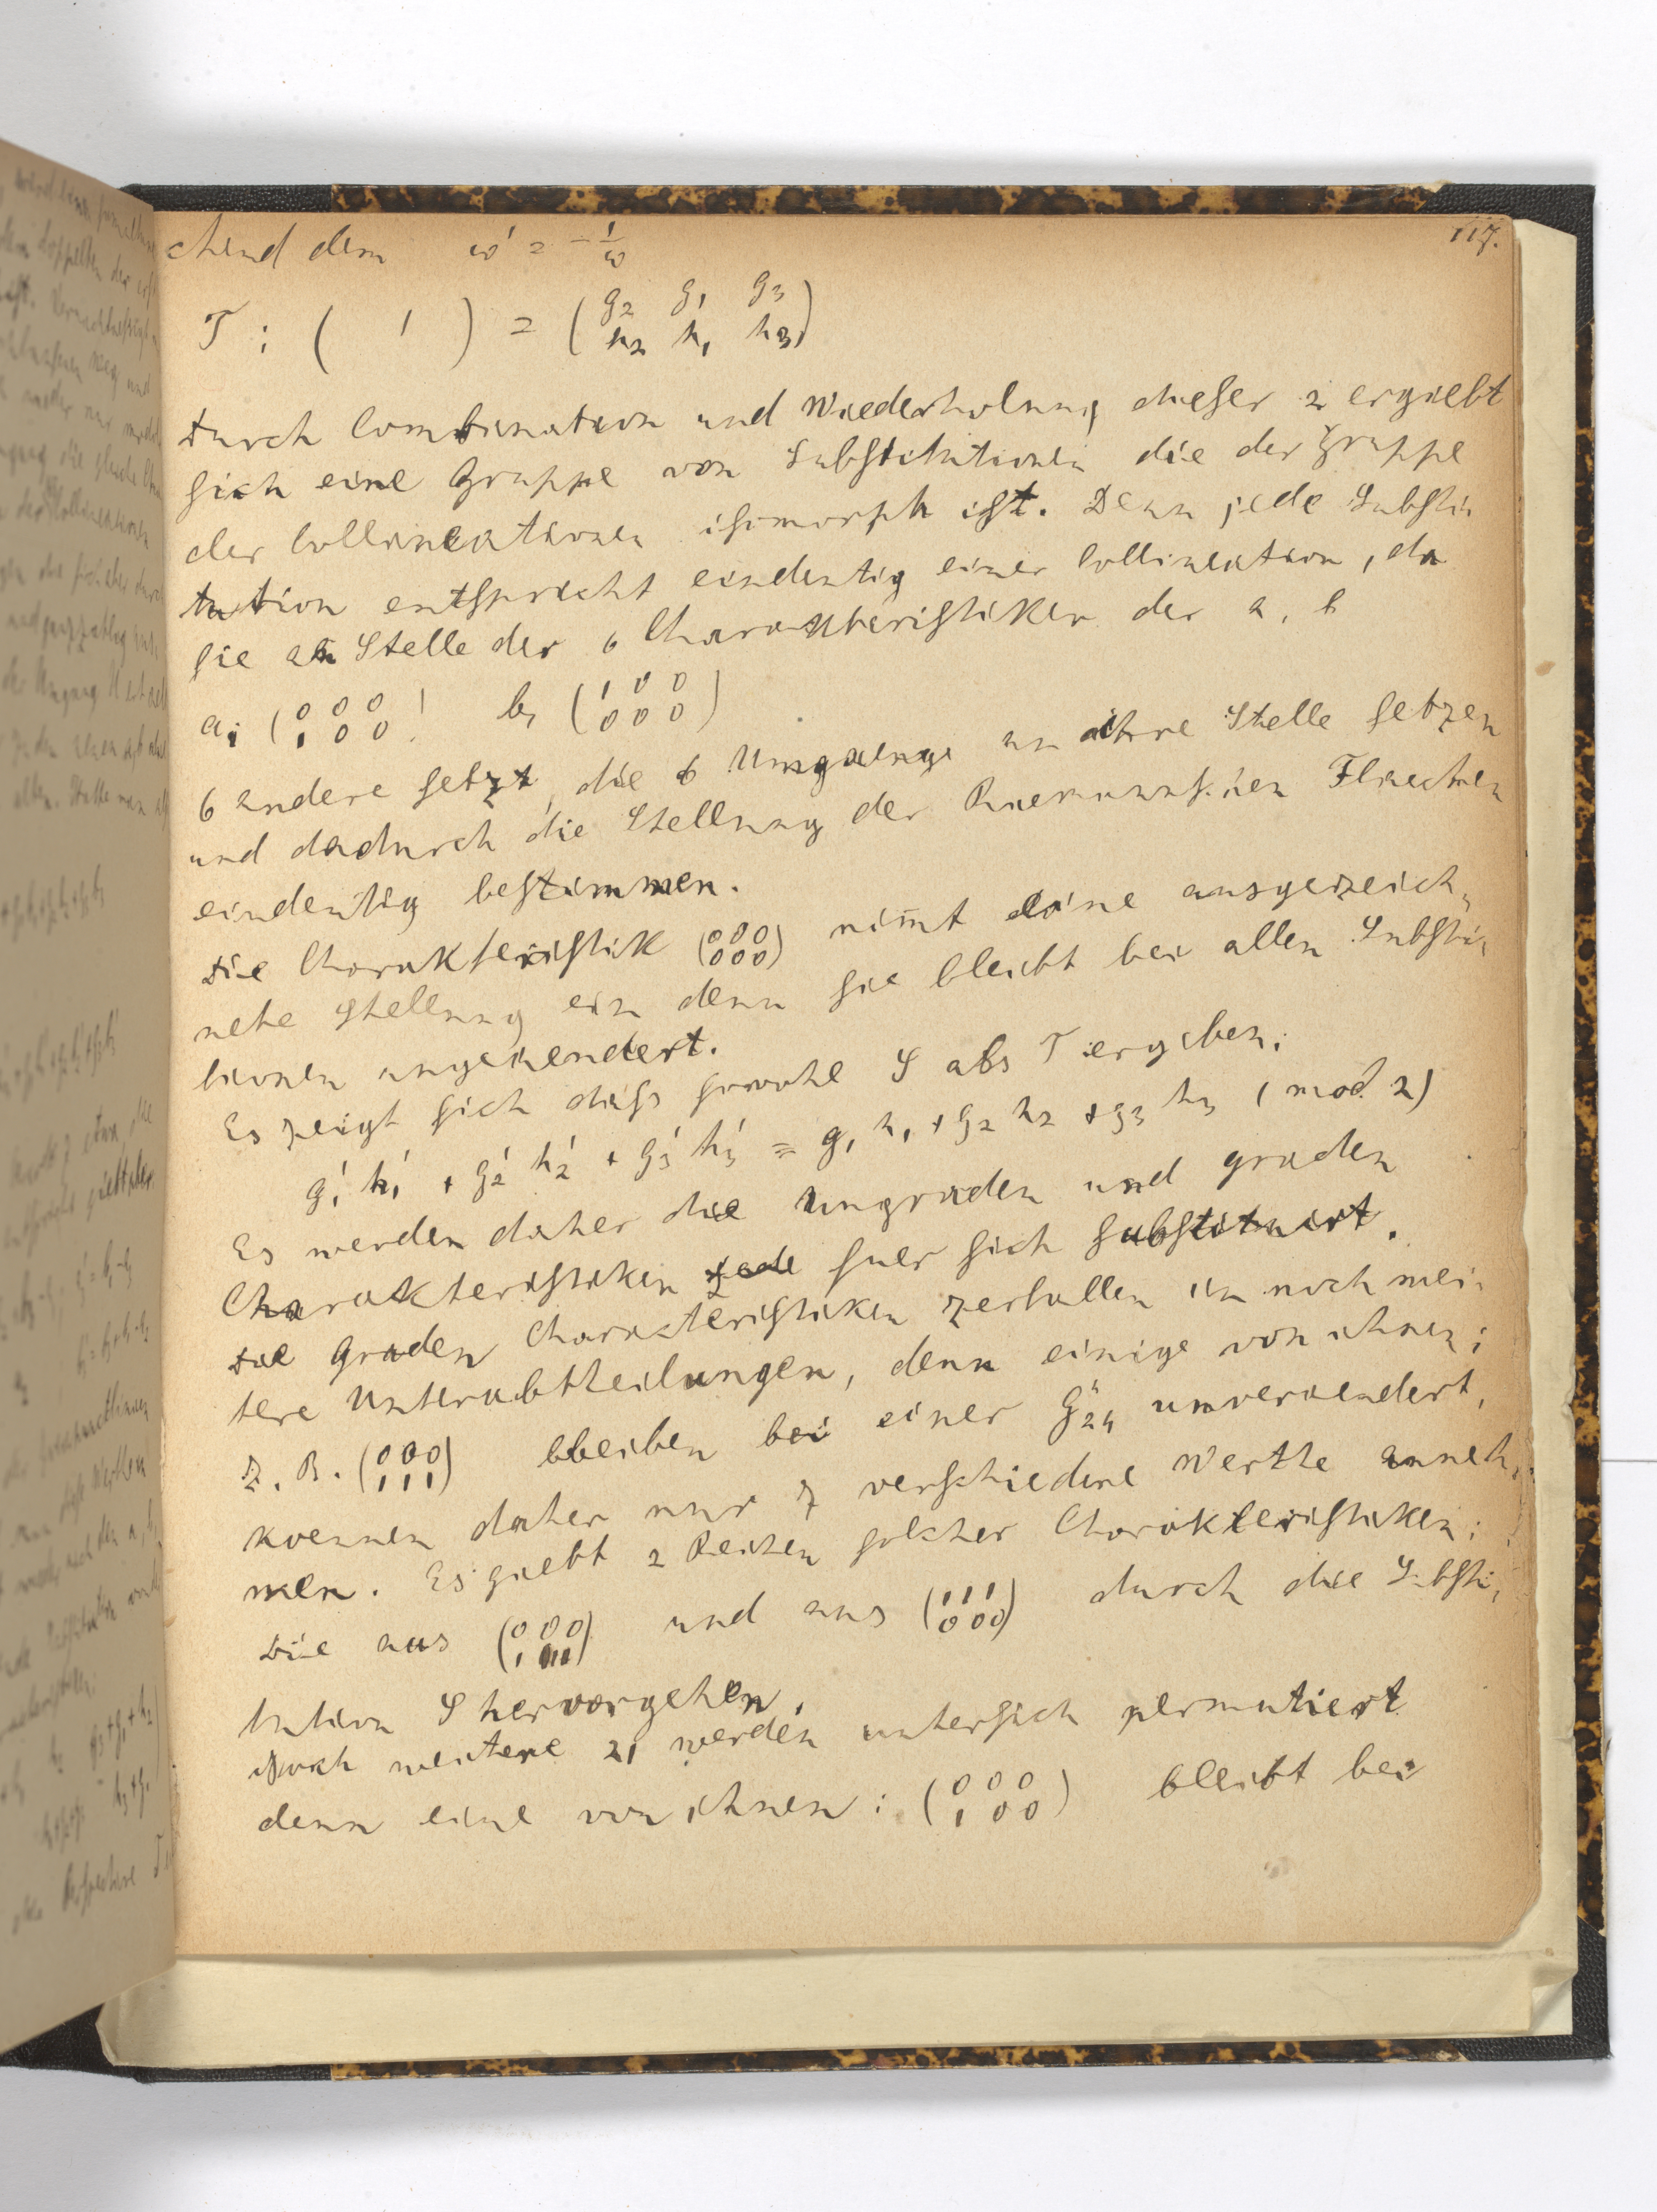 117.
chend dem ω' = -1/ω
T : ( ' ) = (g2 g1 g3 / h2 h1 h3)
Durch Combination und Wiederholung dieser 2 ergiebt
sich eine Gruppe von Substitutionen die der Gruppe
der Collineationen isomorph ist. Denn jede Substi
tution entspricht eindeutig einer Collineation, da
sie an Stelle der 6 Charakteristiken der a, b
a1 (0 0 0 / 1 0 0) b1 (1 0 0 / 0 0 0)
6 andere setzt, die 6 Umgaenge an ihre Stelle setzen
und dadurch die Stellung der Riemannschen Flaechen
eindeutig bestimmen.
Die Charakteristik (000 / 000) nim̅t eine ausgezeich-
nete Stellung ein denn sie bleibt bei allen Substi-
tionen ungeaendert.
Es zeigt sich dass sowohl S als T ergeben:
g1' h1' + g2' h2' + g3' h3' ≡ g1 h1 + g2 h2 + g3 h3 (mod. 2)
Es werden daher die ungraden und graden
Charakteristiken jede fuer sich substituirt.
Die Graden Charakteristiken zerfallen in noch wei-
tere Unterabtheilungen, denn einige von ihnen:
z. B. (000 / 111) bleiben bei einer G"24 unveraendert,
koennen daher nur 7 verschiedene Werthe anneh-
men. Es giebt 2 Reihen solcher Charakteristiken:
Die aus (000 / 111) und aus (111 / 000) durch die Substi-
tution S hervorgehen.
Noch weitere 21 werden untersich permutiert
denn eine von ihnen: (0 0 0 / 1 0 0) bleibt bei